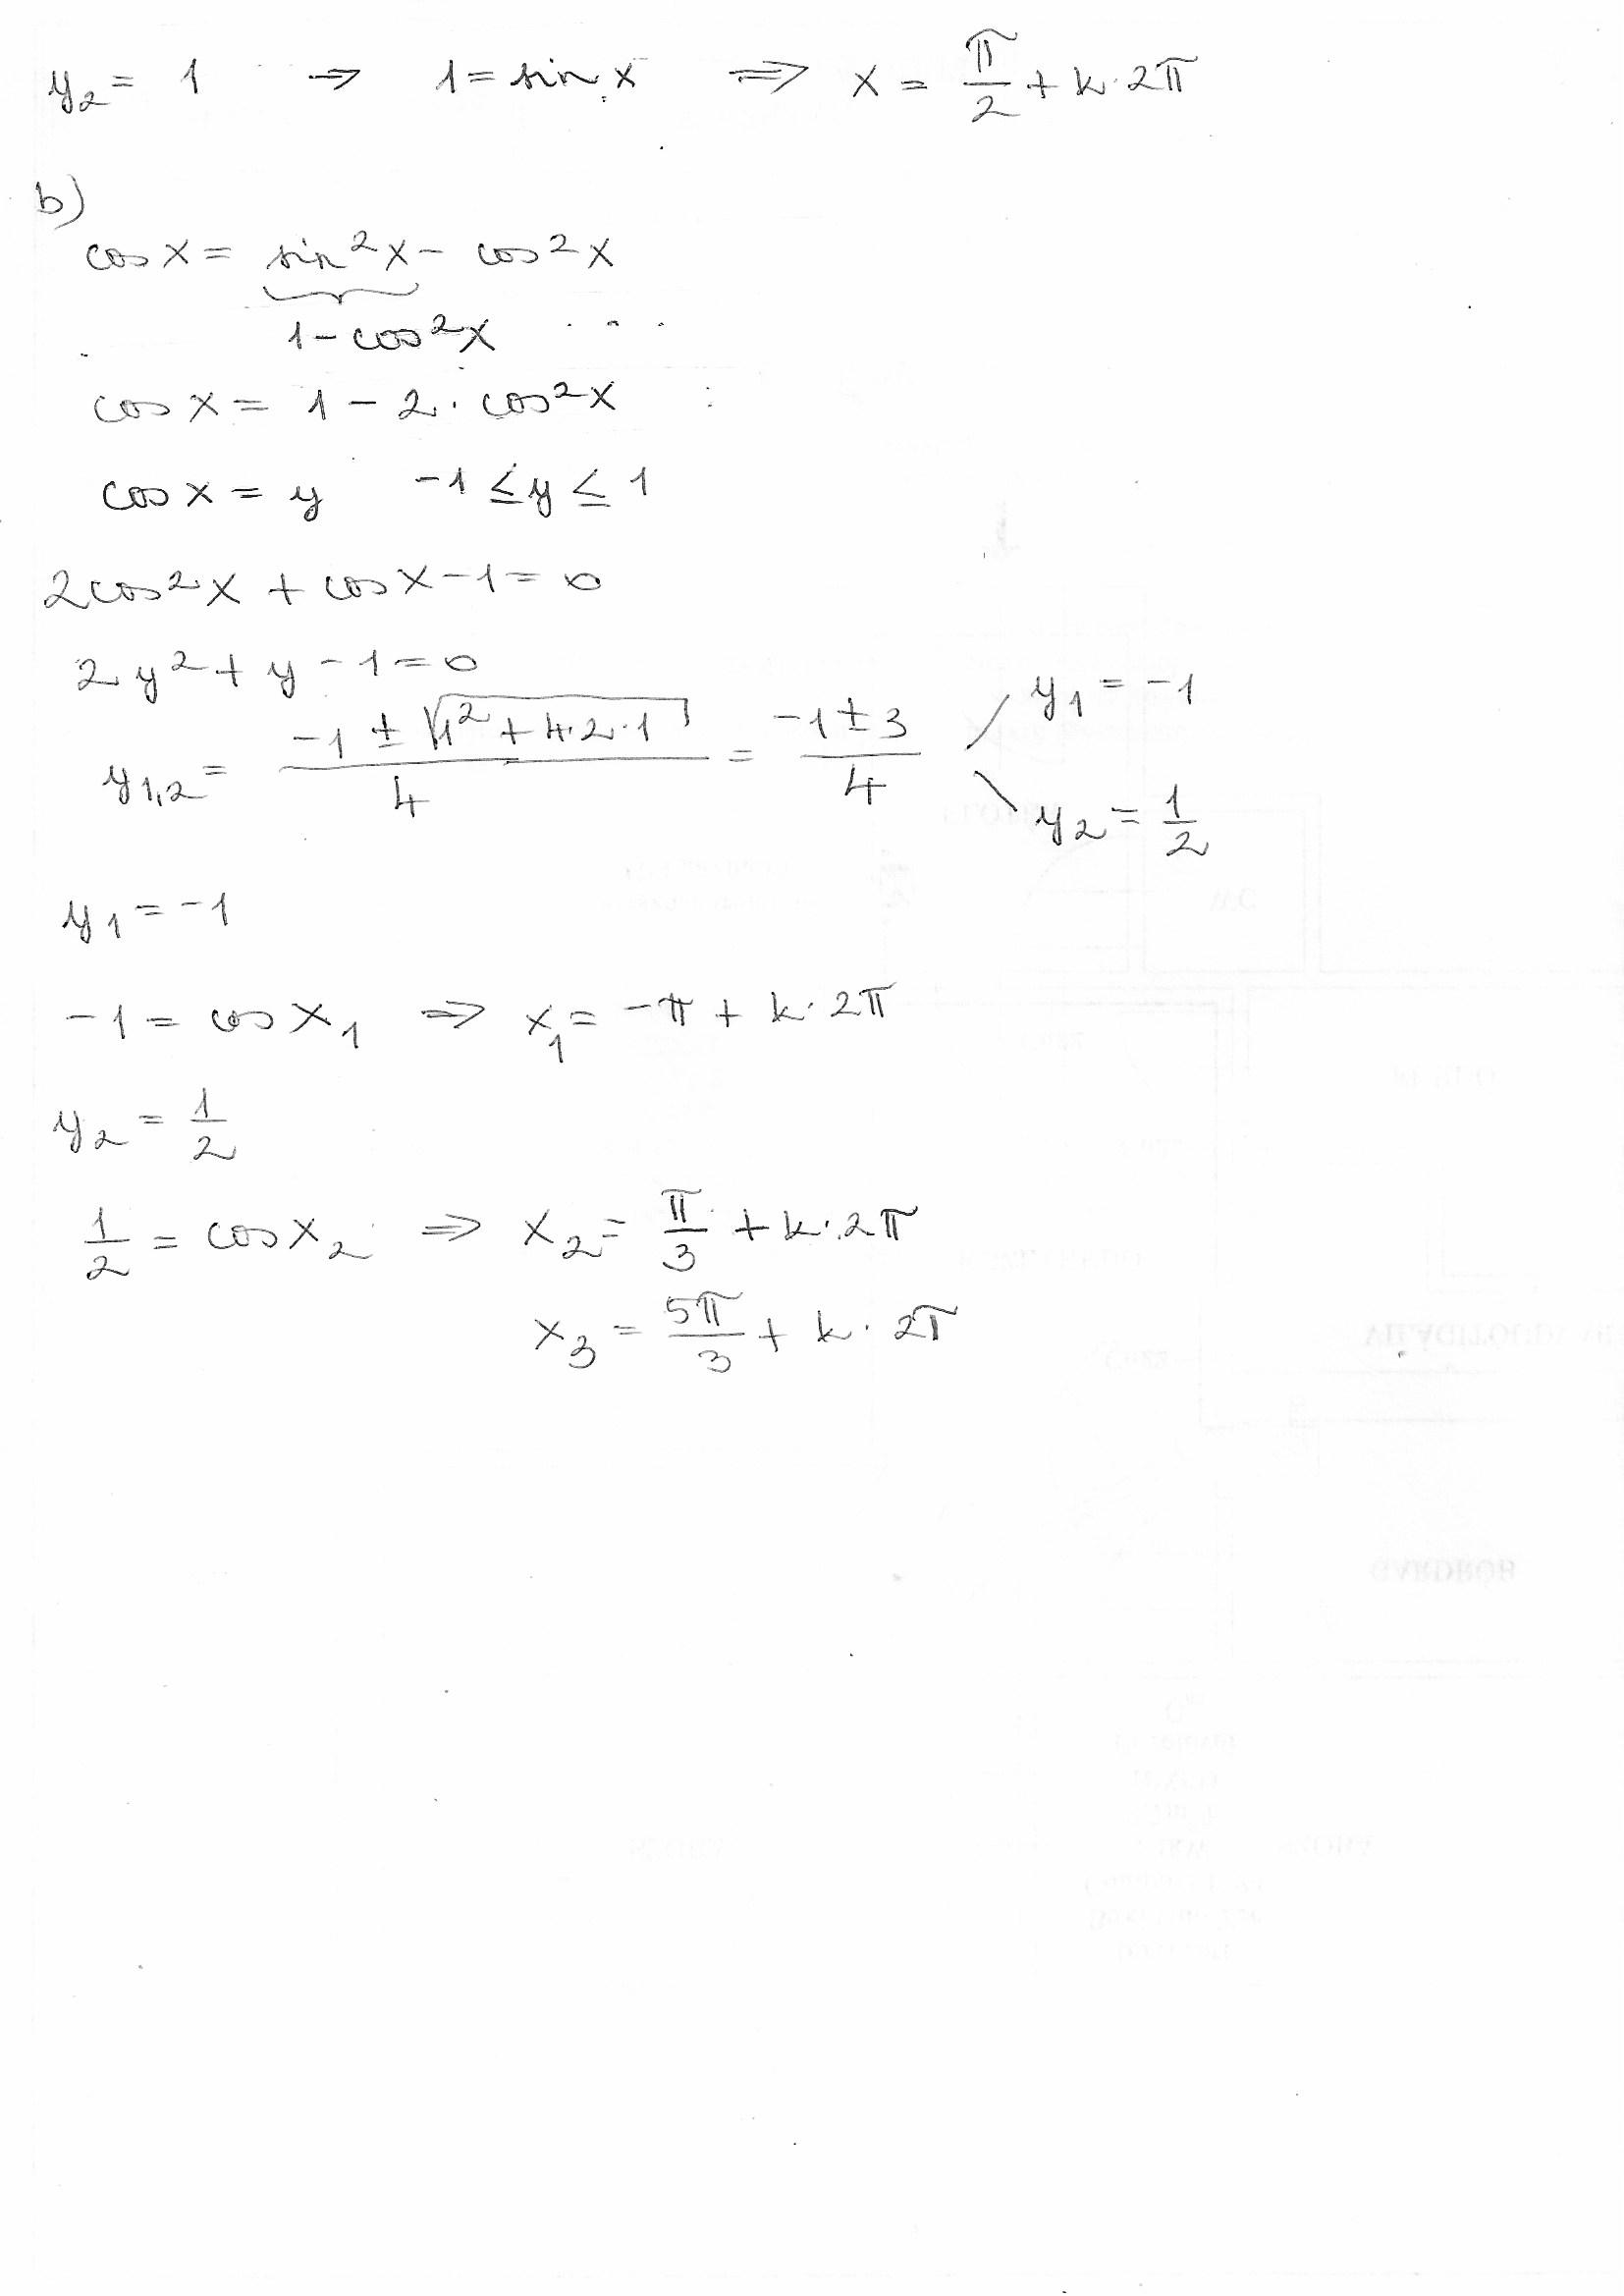 y₂ = 1 → 1 = sin x ⇒ x = π/2 + k·2π
b)
cos x = sin²x − cos²x
1 − cos²x
cos x = 1 − 2 · cos²x
cos x = y −1 ≤ y ≤ 1
2cos²x + cos x − 1 = 0
2y² + y − 1 = 0
y₁,₂ = (−1 ± √(1² + 4·2·1))/4 = (−1 ± 3)/4
y₁ = −1
y₂ = 1/2
y₁ = −1
−1 = cos x₁ ⇒ x₁ = −π + k·2π
y₂ = 1/2
1/2 = cos x₂ ⇒ x₂ = π/3 + k·2π
x₃ = 5π/3 + k·2π